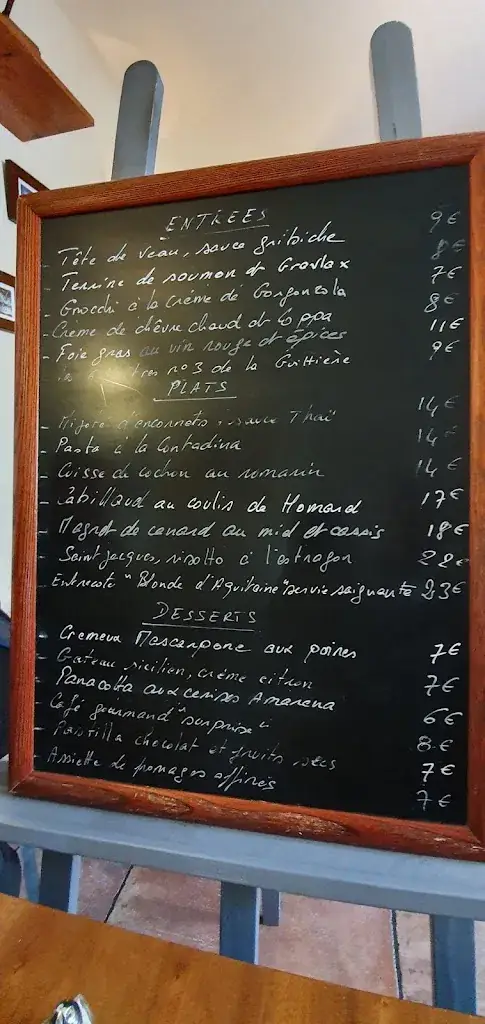 ENTREES
- Tête de veau, sauce gribiche 9€
- Terrine de saumon et Gravlax 8€
- Gnocchi à la crème de Gorgonzola 7€
- Crème de chèvre chaud et Coppa 8€
- Foie gras au vin rouge et épices 11€
nº3 de la Guittière 9€
PLATS
- d'encornets, sauce Thaï 14€
- Pasta à la Contadina 14€
- Cuisse de cochon au romarin 14€
- Cabillaud au coulis de Homard 17€
- Magret de canard au miel et cassis 18€
- Saint jacques, risotto à l'estragon 28€
- Entrecote "Blonde d'Aquitaine" servie saignante 23€
DESSERTS
- Cremeux Mascarpone aux poires 7€
- Gateau sicilien, crème citron 7€
- Panacotta aux cerises Amarena 6€
- Café gourmand "surprise" 8€
- Pastilla chocolat et fruits secs 7€
- Assiette de fromages affinés 7€